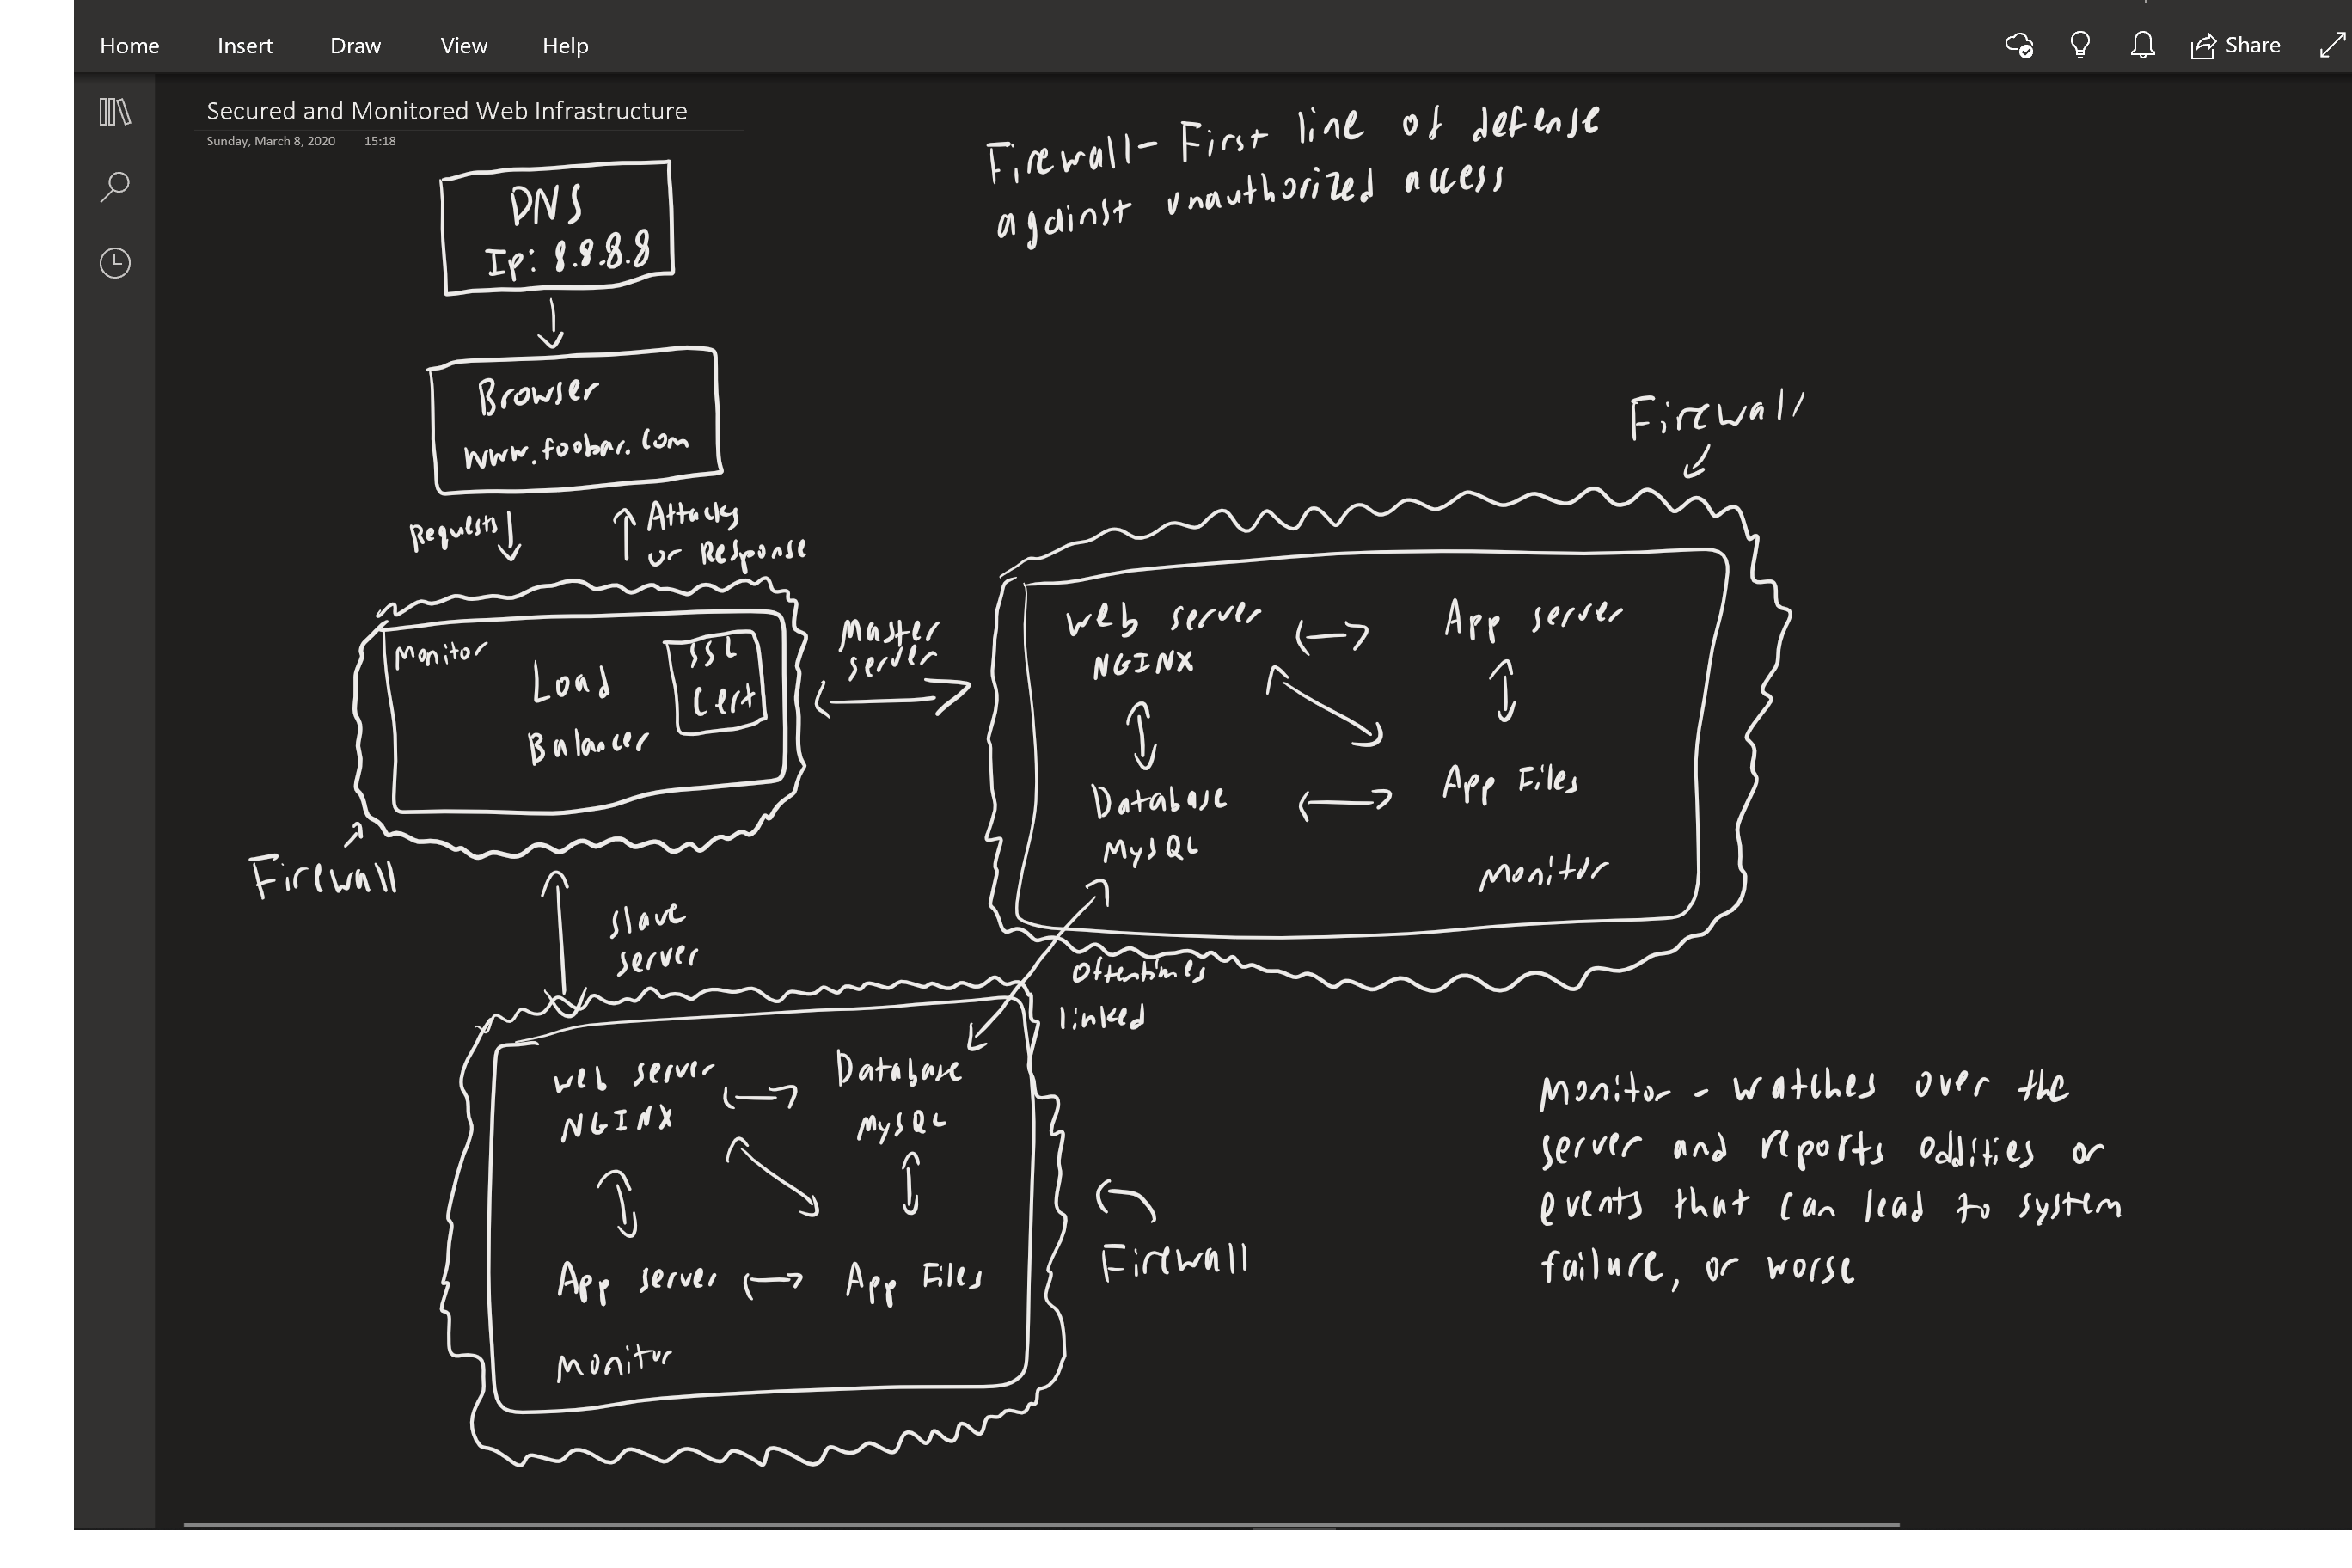 Home Insert Draw View Help
Share
Secured and Monitored Web Infrastructure
Sunday, March 8, 2020 15:18
Firewall - First line of defense
against unauthorized access
DNS
Ip: 8.8.8.8
Browser
www.foobar.com
Requests
Attacks
or Response
Firewall
Monitor
Load
Balancer
SSL
Cert
Master
server
Firewall
web server
NGINX
App server
Database
MySQL
App Files
Monitor
slave
server
Oftentimes
linked
web server
NGINX
Database
MySQL
App server
App Files
Monitor
Firewall
Monitor - watches over the
server and reports oddities or
events that can lead to system
failure, or worse